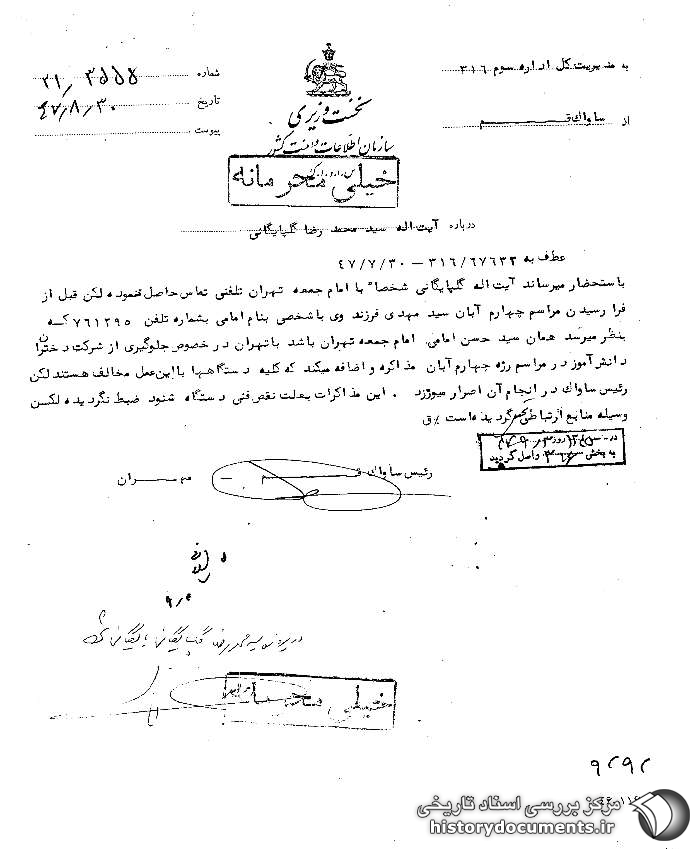 به مدیریت کل اداره سوم ۳۱۶
از ساواك قم
نخست وزیری
سازمان اطلاعات و امنیت کشور
شماره ۲۱/۳۵۵۵
تاریخ ۴۷/۸/۳۰
پیوست
خیلی محرمانه
درباره آیت اله سید محمد رضا گلپایگانی
عطف به ۳۱۶/۶۷۶۳۲ – ۴۷/۷/۳۰
باستحضار میرساند آیت اله گلپایگانی شخصاً با امام جمعه تهران تلفنی تماس حاصل ننموده لکن قبل از
فرا رسیدن مراسم چهارم آبان سید مهدی فرزند وی باشخصی بنام امامی بشماره تلفن ۷۶۱۲۹۵ که
بنظر میرسد همان سید حسن امامی امام جمعه تهران باشد باتهران در خصوص جلوگیری از شرکت دختران
دانش آموز در مراسم رژه چهارم آبان مذاکره و اضافه میکند که کلیه دستگاهها با این عمل مخالف هستند لکن
رئیس ساواك در انجام آن اصرار میورزد . این مذاکرات بعلت نقص فنی دستگاه شنود ضبط نگردیده لکن
وسیله منابع ارتباطی گردیده است %ق
به بخش ۳۱۶ واصل گردید
رئیس ساواك قم – مهران
۹/۲
در پرونده سید محمد رضا گلپایگانی بایگانی شود
خیلی محرمانه
۹۲۹۲
مرکز بررسی اسناد تاریخی
historydocuments.ir